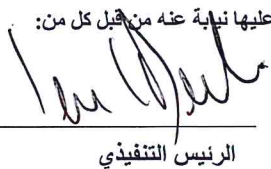 عليها نيابة عنه من قبل كل من:
الرئيس التنفيذي